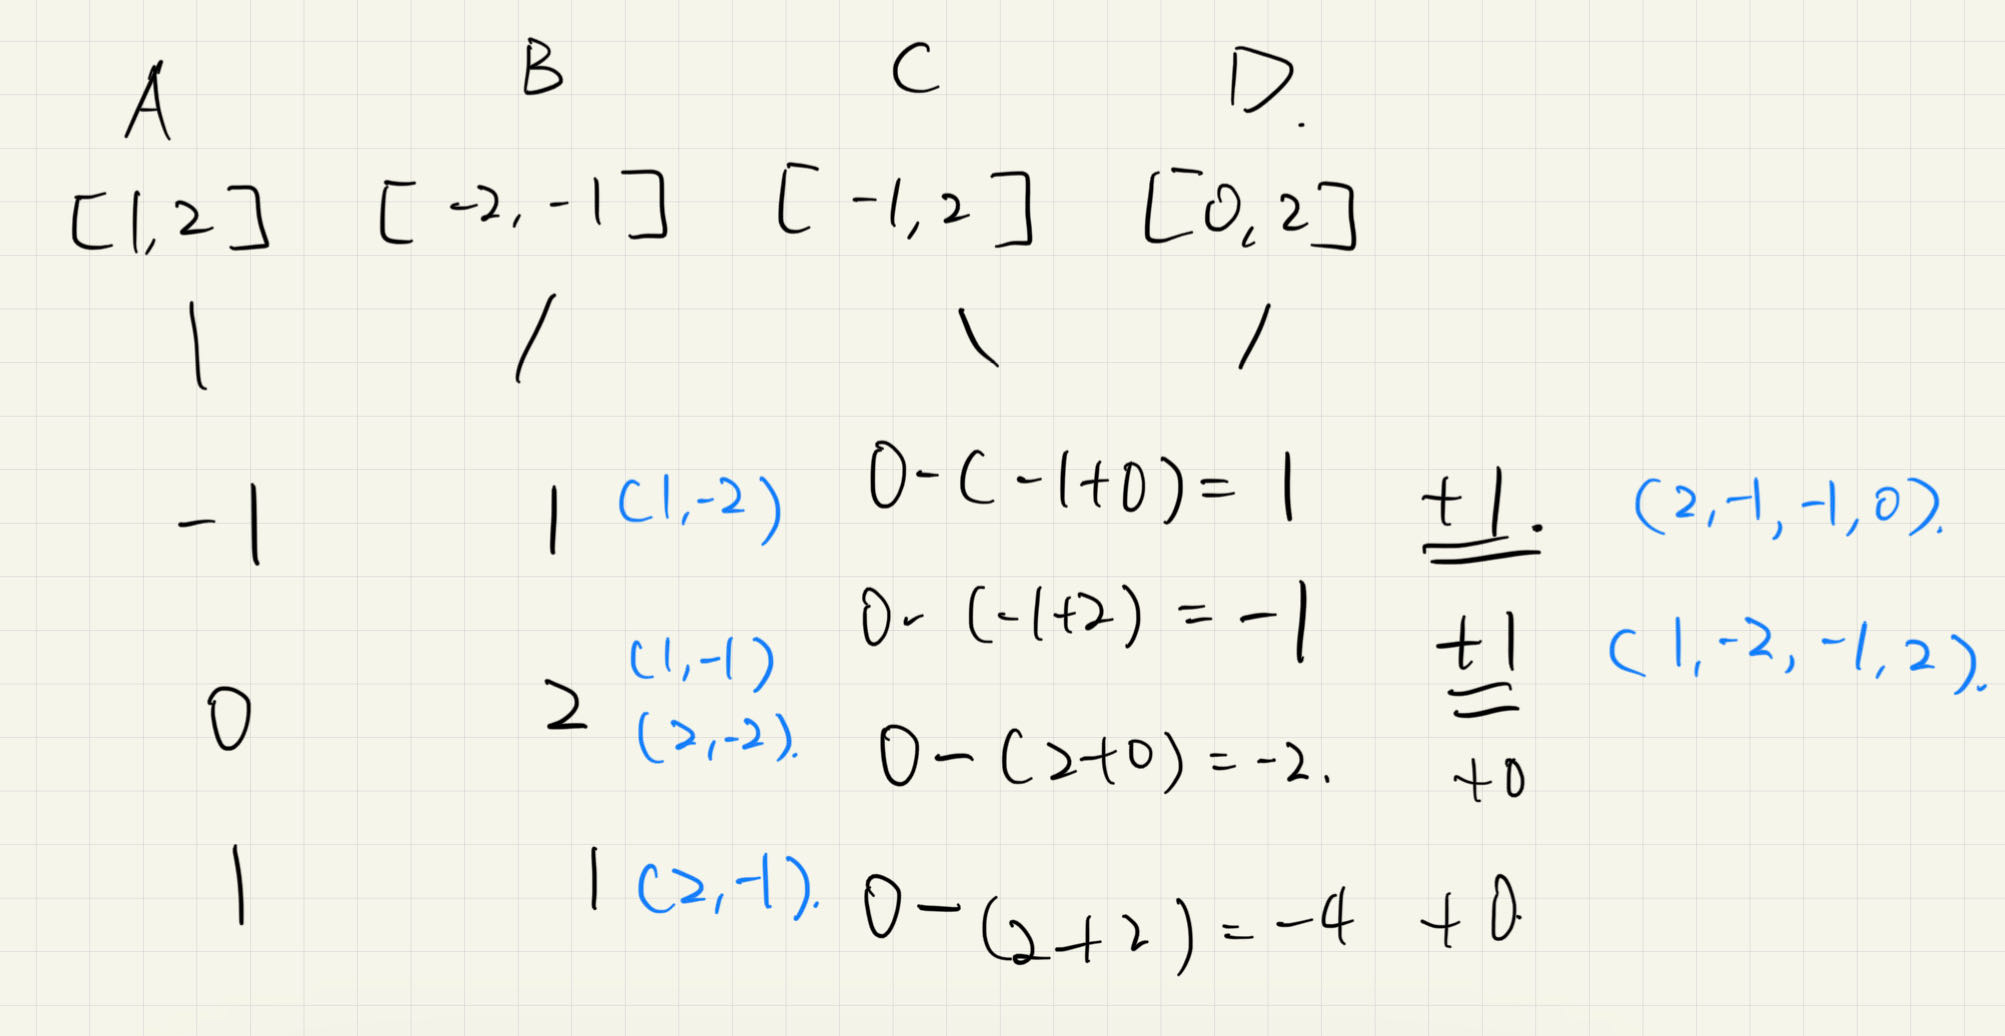 A B C D.
[1,2] [-2,-1] [-1,2] [0,2]
| / \ /
-1 1 (1,-2) 0-(-1+0)=1 +1. (2,-1,-1,0).
0-(-1+2)=-1 +1 (1,-2,-1,2).
0 2 (1,-1)
(2,-2). 0-(2+0)=-2. +0
1 1 (2,-1). 0-(2+2)=-4 +0.